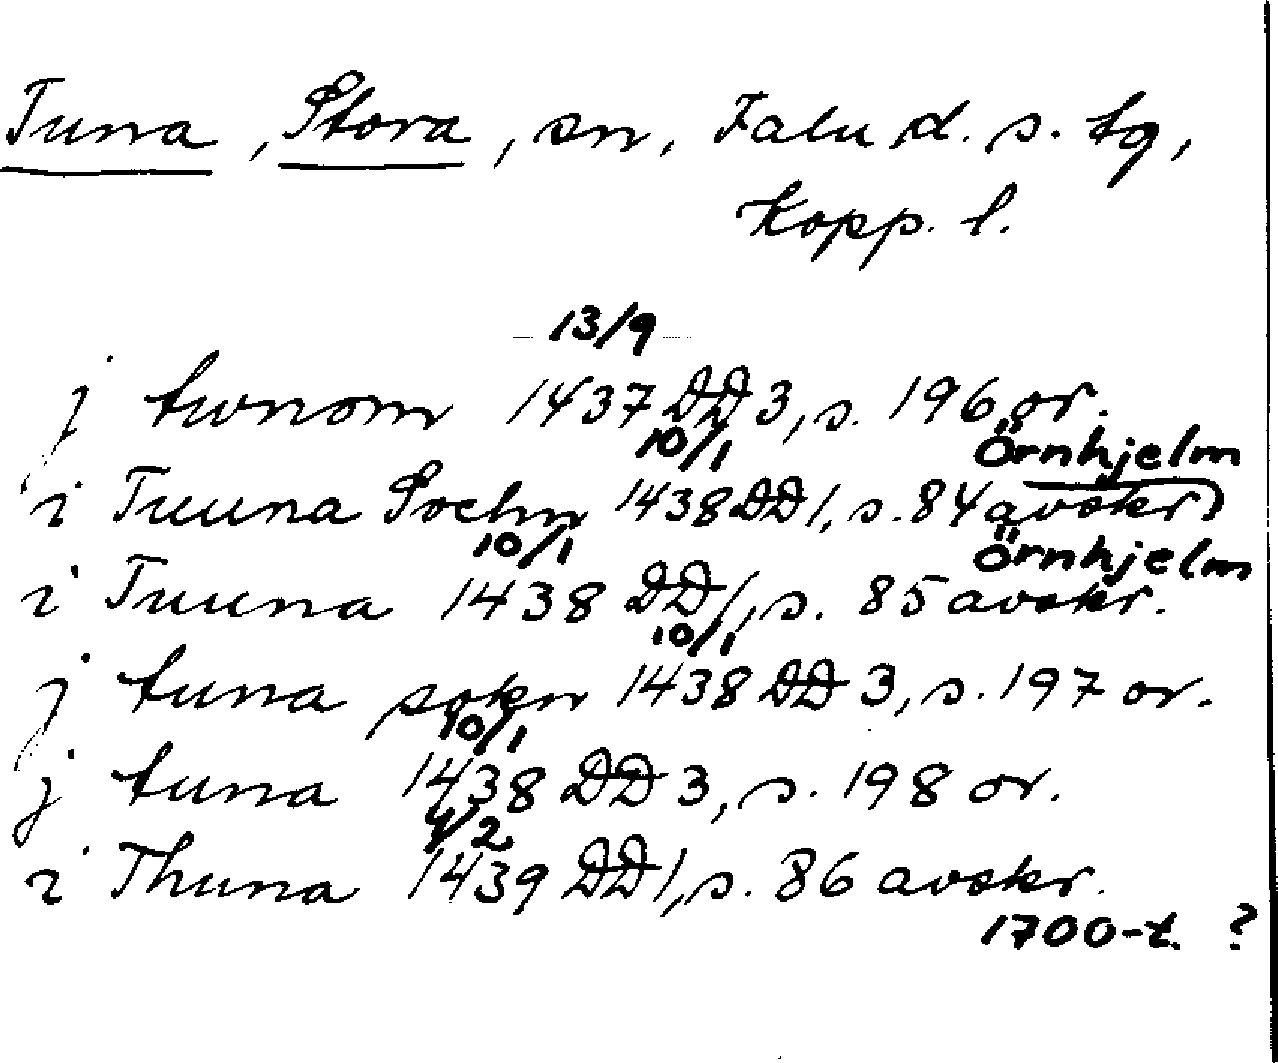 Tuna, Stora, sn, Falu d. s. tg,
Kopp. l.
13/9
j twnom 1437 DD 3, s. 196 or.
10/1 Örnhjelm
i Tuuna Sochn 1438 DD 1, s. 84 avskr)
10/1 Örnhjelm
i Tuuna 1438 DD 1, s. 85 avskr.
10/1
j tuna sokn 1438 DD 3, s. 197 or.
10/1
j tuna 1438 DD 3, s. 198 or.
4/2
i Thuna 1439 DD 1, s. 86 avskr.
1700-t. ?